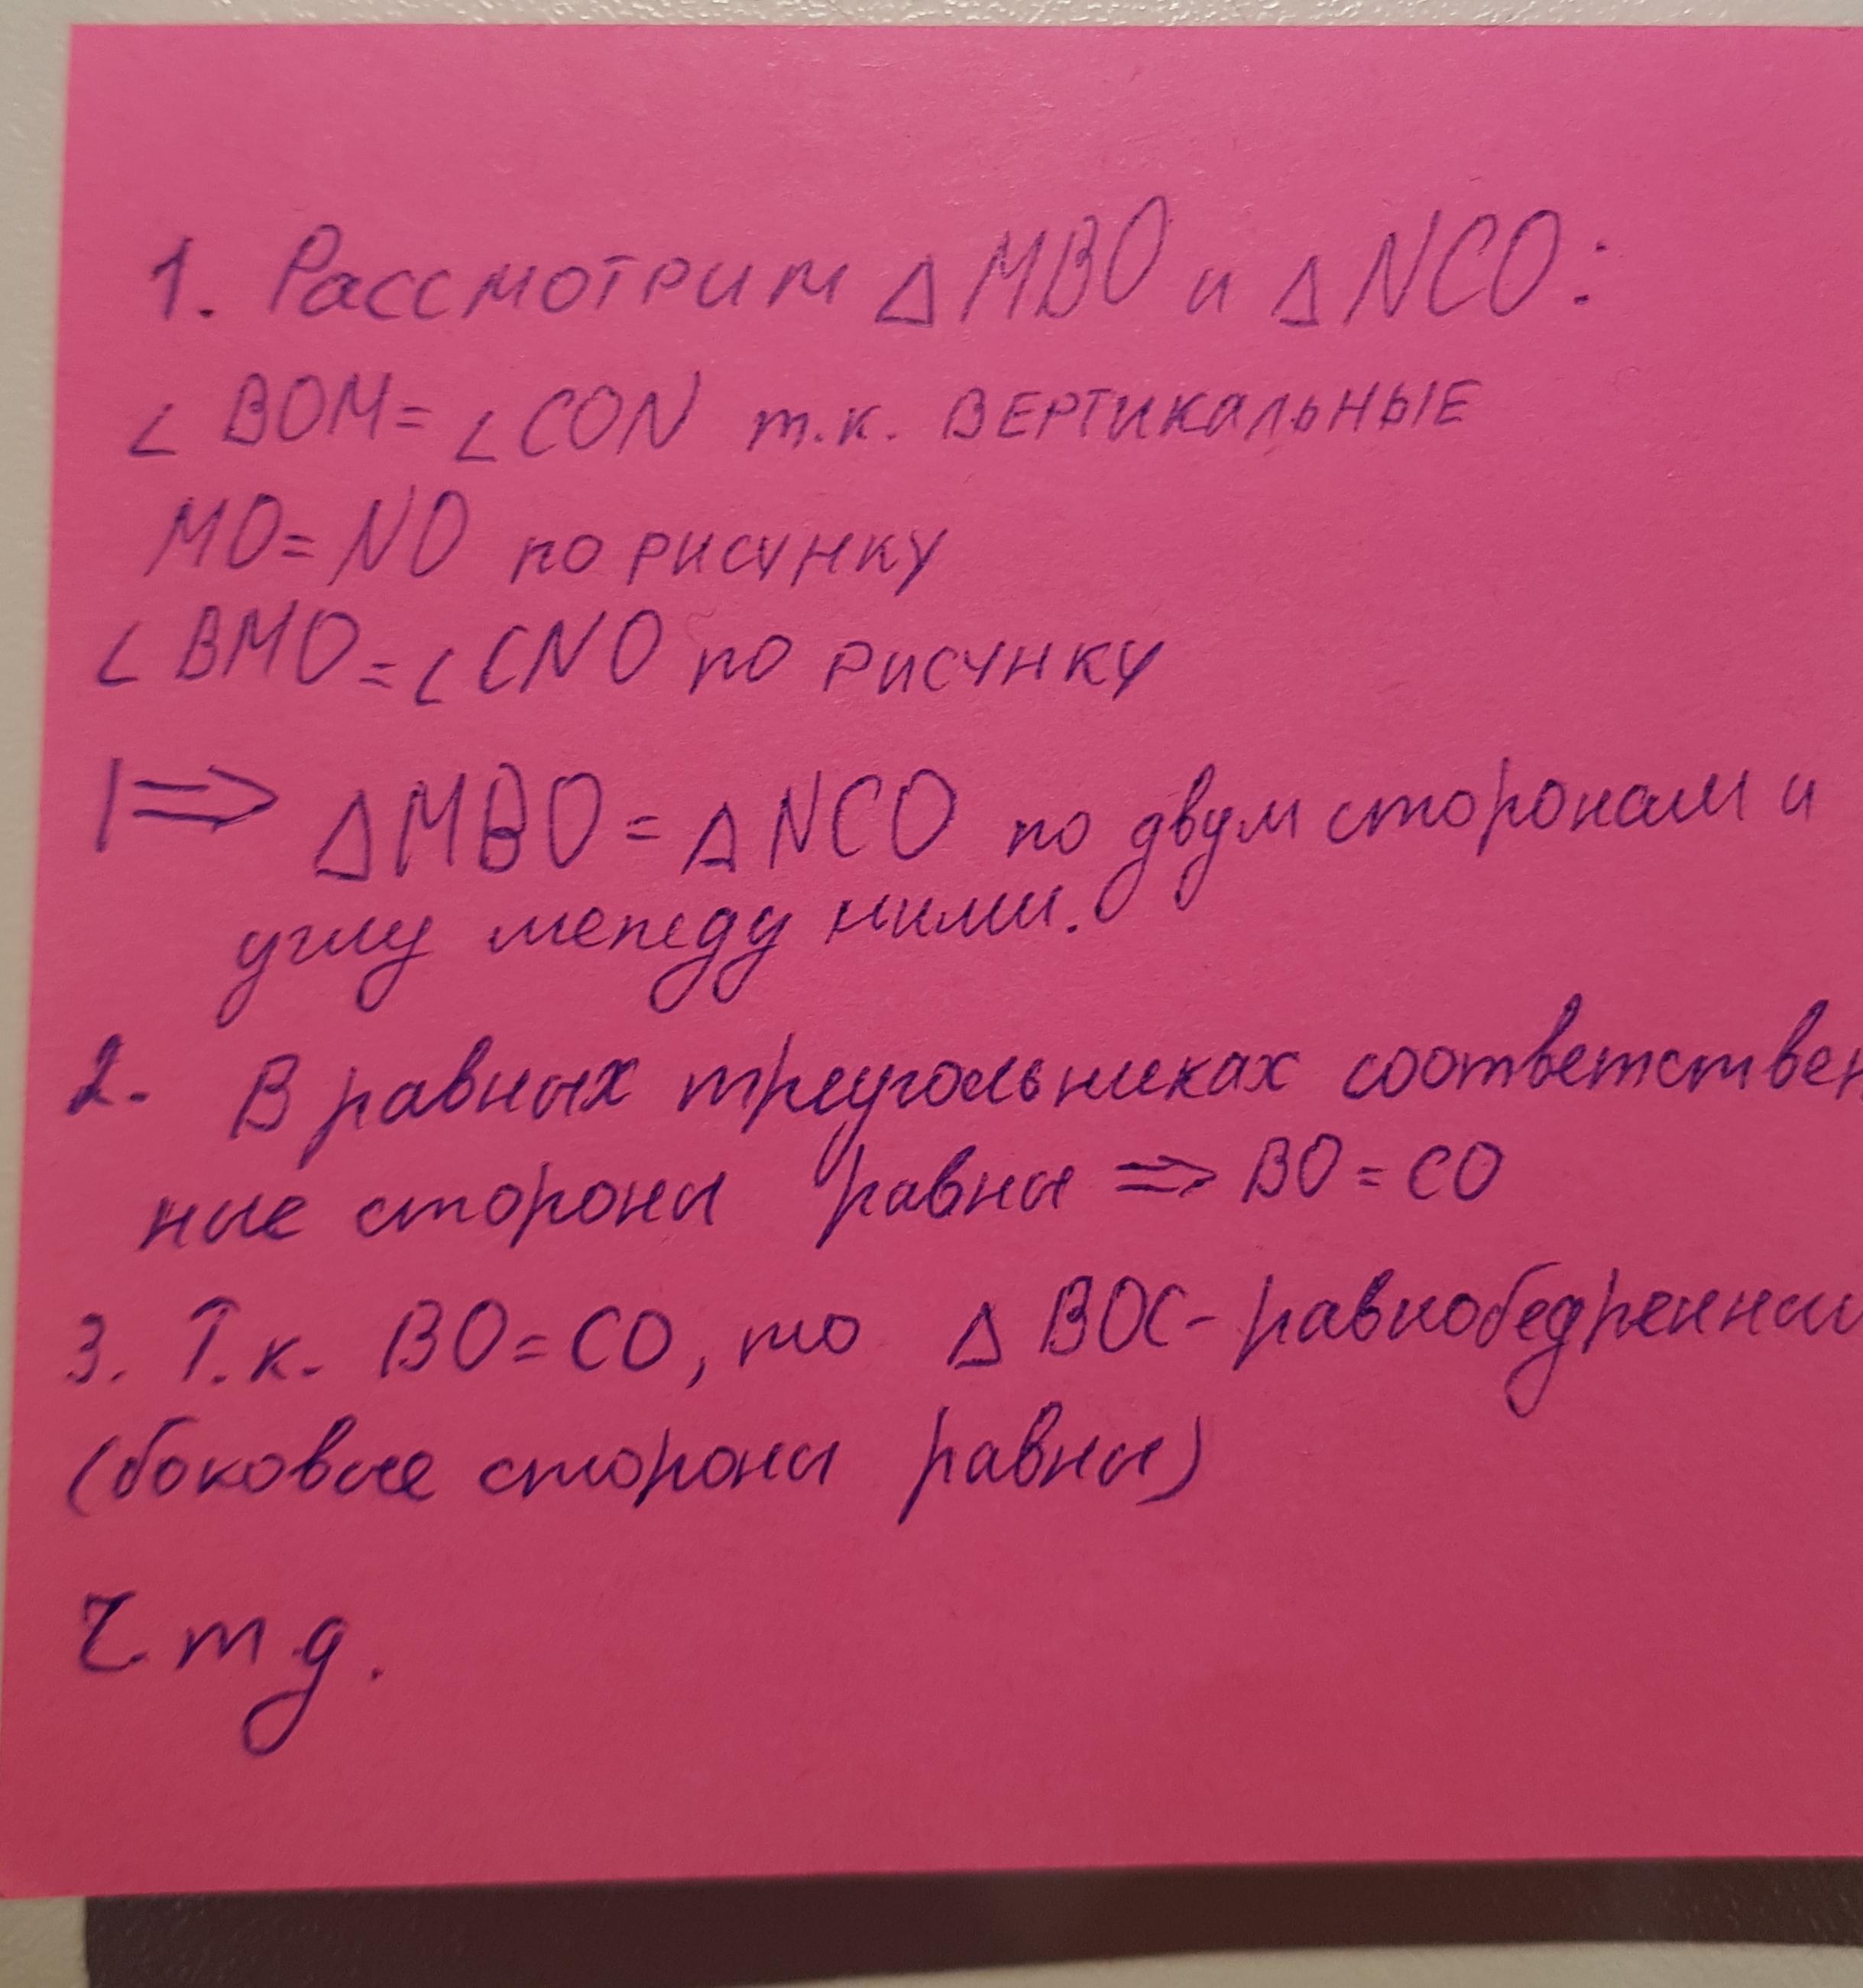 1. Рассмотрим △MBO и △NCO:
∠BOM = ∠CON т.к. ВЕРТИКАЛЬНЫЕ
MO = NO по рисунку
∠BMO = ∠CNO по рисунку
|⇒ △MBO = △NCO по двум сторонам и
углу между ними.
2. В равных треугольниках соответствен
ные стороны равны ⇒ BO = CO
3. Т.к. BO = CO, то △BOC - равнобедренны
(боковые стороны равны)
Ч.т.д.